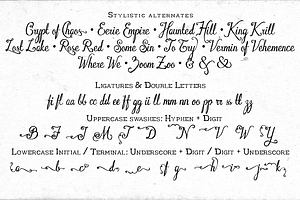 Stylistic alternates
Crypt of Chaos • Eerie Empire • Haunted Hill • King Krill
Lost Lake • Rose Red • Some Sin • To Try • Vermin of Vehemence
Where We • Zoom Zoo • & & &
Ligatures & Double Letters
fi fl aa bb cc dd ee ff gg ii ll mm nn oo pp rr ss tt zz
Uppercase swashes: Hyphen + Digit
B F I M T D N V W Y
Lowercase Initial / Terminal: Underscore + Digit / Digit + Underscore